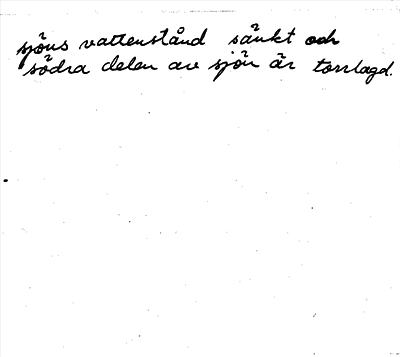 sjöns vattenstånd sänkt och
södra delen av sjön är torrlagd.